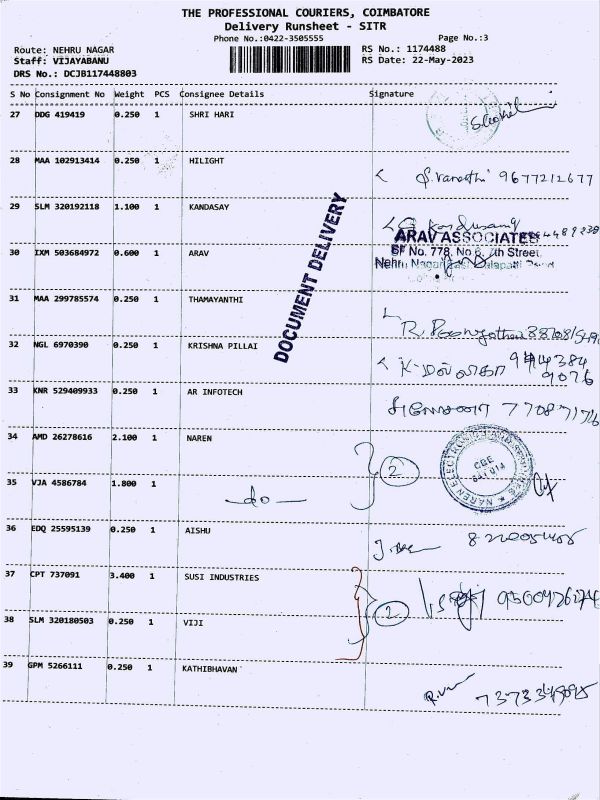 THE PROFESSIONAL COURIERS, COIMBATORE
Delivery Runsheet - SITR
Phone No.:0422-3505555
Page No.:3
Route: NEHRU NAGAR
RS No.: 1174488
Staff: VIJAYABANU
RS Date: 22-May-2023
DRS No.: DCJB117448803
S No Consignment No Weight PCS Consignee Details Signature
27 DDG 419419 0.250 1 SHRI HARI
28 MAA 102913414 0.250 1 HILIGHT
9677212677
29 SLM 320192118 1.100 1 KANDASAY
DOCUMENT DELIVERY
ARAV ASSOCIATES
30 IXM 503684972 0.600 1 ARAV
SF No. 778, No 6, 7th Street,
Nehru Nagar East,
31 MAA 299785574 0.250 1 THAMAYANTHI
32 NGL 6970390 0.250 1 KRISHNA PILLAI
9076
33 KNR 529409933 0.250 1 AR INFOTECH
34 AMD 26278616 2.100 1 NAREN
2
CBE
641 014
35 VJA 4586784 1.800 1
-do-
36 EDQ 25595139 0.250 1 AISHU
37 CPT 737091 3.400 1 SUSI INDUSTRIES
2
38 SLM 320180503 0.250 1 VIJI
39 GPM 5266111 0.250 1 KATHIBHAVAN